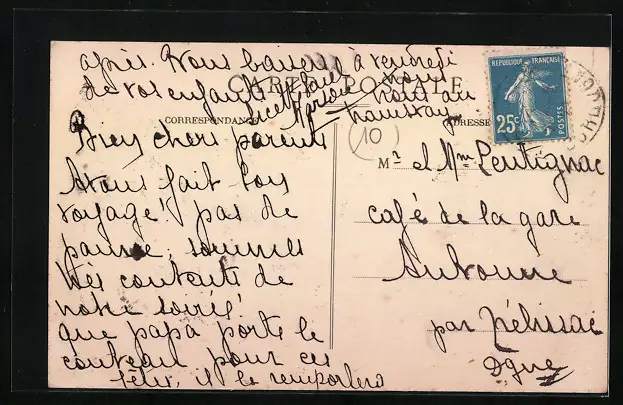 CARTE POSTALE
CORRESPONDANCE
ADRESSE
RÉPUBLIQUE FRANÇAISE
25c
POSTES
10
Bien chers parents
Avons fait bon
voyage! pas de
panne, sommes
très contents de
notre soirée!
que papa porte le
couteau pour ces
fêtes, il le remportera
après. Nous
à vendredi
de vos enfants
nous au
tramway
Mr et Mme Lentignac
café de la gare
Aubonne
par Nélissac
Dgne